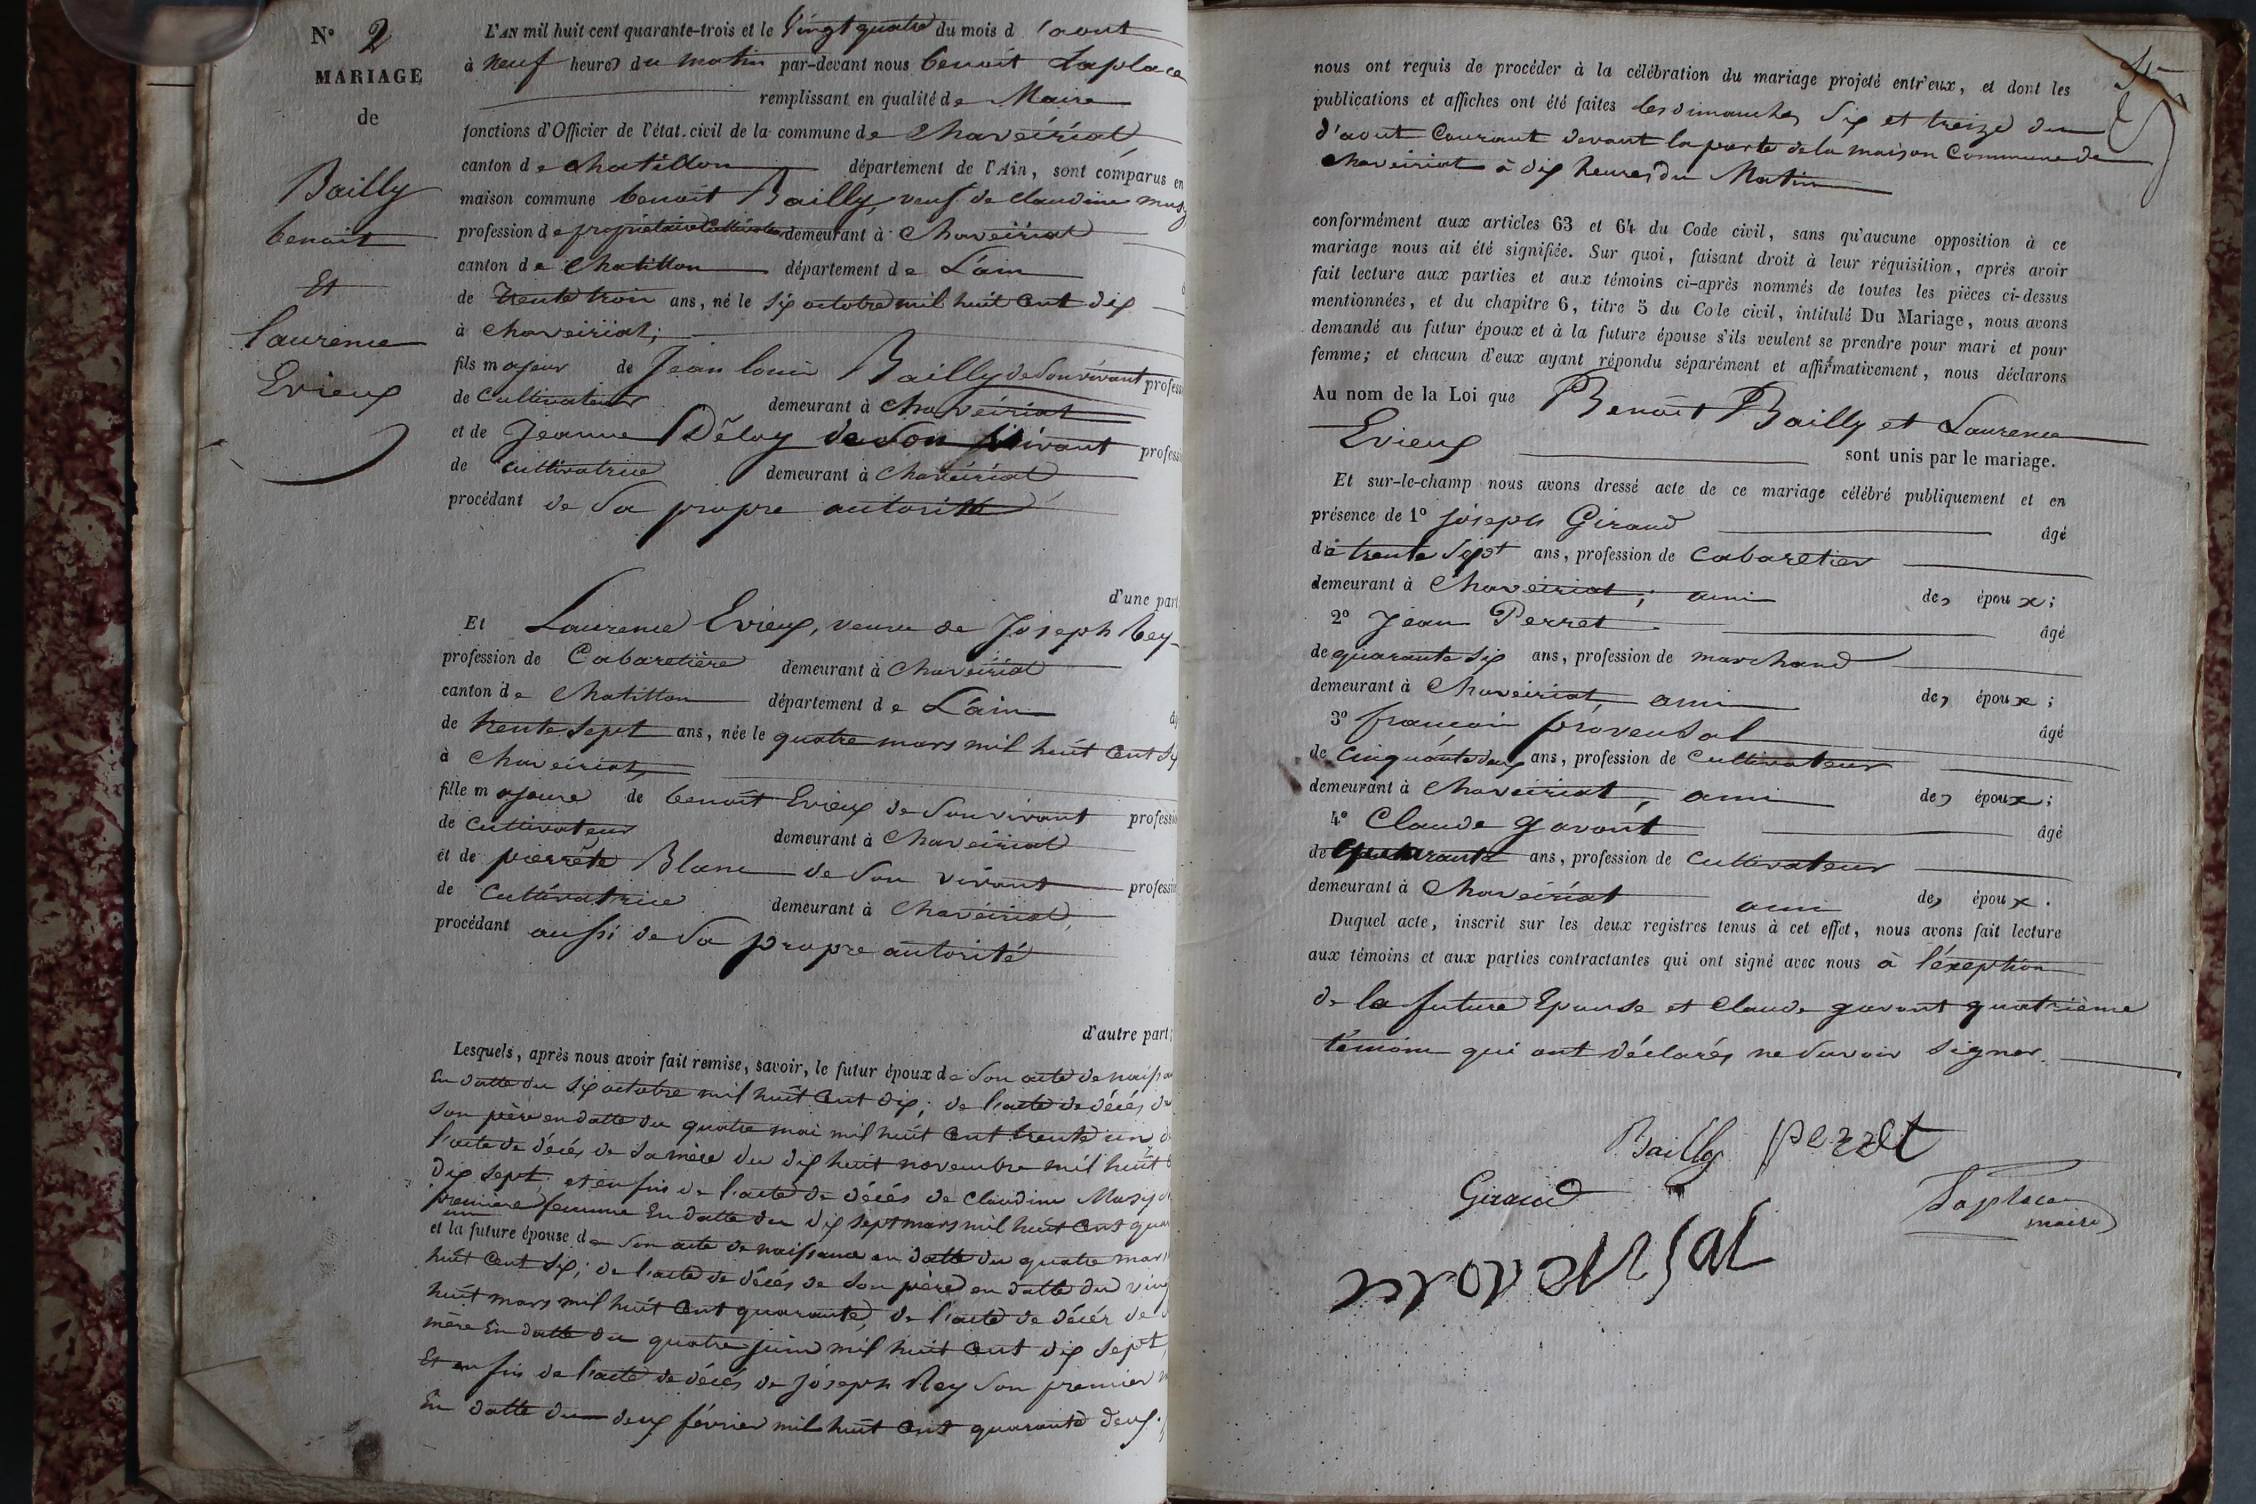 N° 2
MARIAGE
de
Bailly
benoit
Et
laurence
Evieux
L'AN mil huit cent quarante-trois et le Vingt quatre du mois d'aout
à neuf heures du matin par-devant nous benoit Laplace
remplissant en qualité de Maire
fonctions d'Officier de l'état.civil de la commune de Chaveiriat,
canton de chatillon département de l'Ain, sont comparus en
maison commune benoit Bailly, veuf de claudine
profession de propriétaire Cultivateur demeurant à Chaveiriat
canton de Chatillon département de L'ain
de trente trois ans, né le six octobre mil huit cent dix
à chaveiriat;
fils majeur de Jean louis Bailly de son vivant profess
de Cultivateur demeurant à chaveiriat
et de Jeanne Déloy de son vivant profess
de cultivatrice demeurant à chaveiriat
procédant de sa propre autorité
d'une part
Et Laurence Evieux, veuve de Joseph Rey
profession de Cabaretière demeurant à chaveiriat
canton de Chatillon département de L'ain
de trente sept ans, née le quatre mars mil huit cent six
à Chaveiriat
fille majeure de benoit Evieux de son vivant profess
de cultivateur demeurant à Chaveiriat
et de pierrette Blanc de son vivant professi
de cultivatrice demeurant à Chavéiriat,
procédant aussi de sa propre autorité
d'autre part;
Lesquels, après nous avoir fait remise, savoir, le futur époux de son acte de naissa
En datte du six octobre mil huit cent dix; de l'acte de décés de
son père en datte du quatre mai mil huit cent trente un,
l'acte de décés de sa mère du dix huit novembre mil huit
dix sept. et enfin de l'acte de décés de claudine
première femme En datte du dix sept mars mil huit cent quar
et la future épouse de son acte de naissance en datte du quatre mars
huit cent six; de l'acte de décés de son père en datte du ving
huit mars mil huit cent quarante, de l'acte de décés de
mère En datte du quatre juin mil huit cent dix sept,
Et enfin de l'acte de décés de Joseph Rey son premier
En datte du deux février mil huit cent quarante deux.
nous ont requis de procéder à la célébration du mariage projeté entr'eux, et dont les
publications et affiches ont été faites les dimanches six et treize du
d'aout Courant devant la porte de la maison Commune de
chaveiriat à dix heures du Matin
conformément aux articles 63 et 64 du Code civil, sans qu'aucune opposition à ce
mariage nous ait été signifiée. Sur quoi, faisant droit à leur réquisition, après avoir
fait lecture aux parties et aux témoins ci-après nommés de toutes les pièces ci-dessus
mentionnées, et du chapitre 6, titre 5 du Code civil, intitulé Du Mariage, nous avons
demandé au futur époux et à la future épouse s'ils veulent se prendre pour mari et pour
femme; et chacun d'eux ayant répondu séparément et affirmativement, nous déclarons
Au nom de la Loi que Benoit Bailly et Laurence
Evieux sont unis par le mariage.
Et sur-le-champ nous avons dressé acte de ce mariage célébré publiquement et en
présence de 1° Joseph Giraud âgé
de trente sept ans, profession de cabaretier
demeurant à Chaveiriat; ami des époux;
2° Jean Perret âgé
de quarante six ans, profession de marchand
demeurant à Chaveiriat ami des époux;
3° francois provensal âgé
de cinquante deux ans, profession de Cultivateur
demeurant à Chaveiriat, ami des époux;
4° Claude gavant âgé
de quarante ans, profession de cultivateur
demeurant à Chaveiriat ami des époux.
Duquel acte, inscrit sur les deux registres tenus à cet effet, nous avons fait lecture
aux témoins et aux parties contractantes qui ont signé avec nous à l'exeption
de la future Epouse et Claude gavant quatrième
témoin qui ont déclarés ne savoir signer.
Bailly perret
Giraud Laplace
maire
provensal